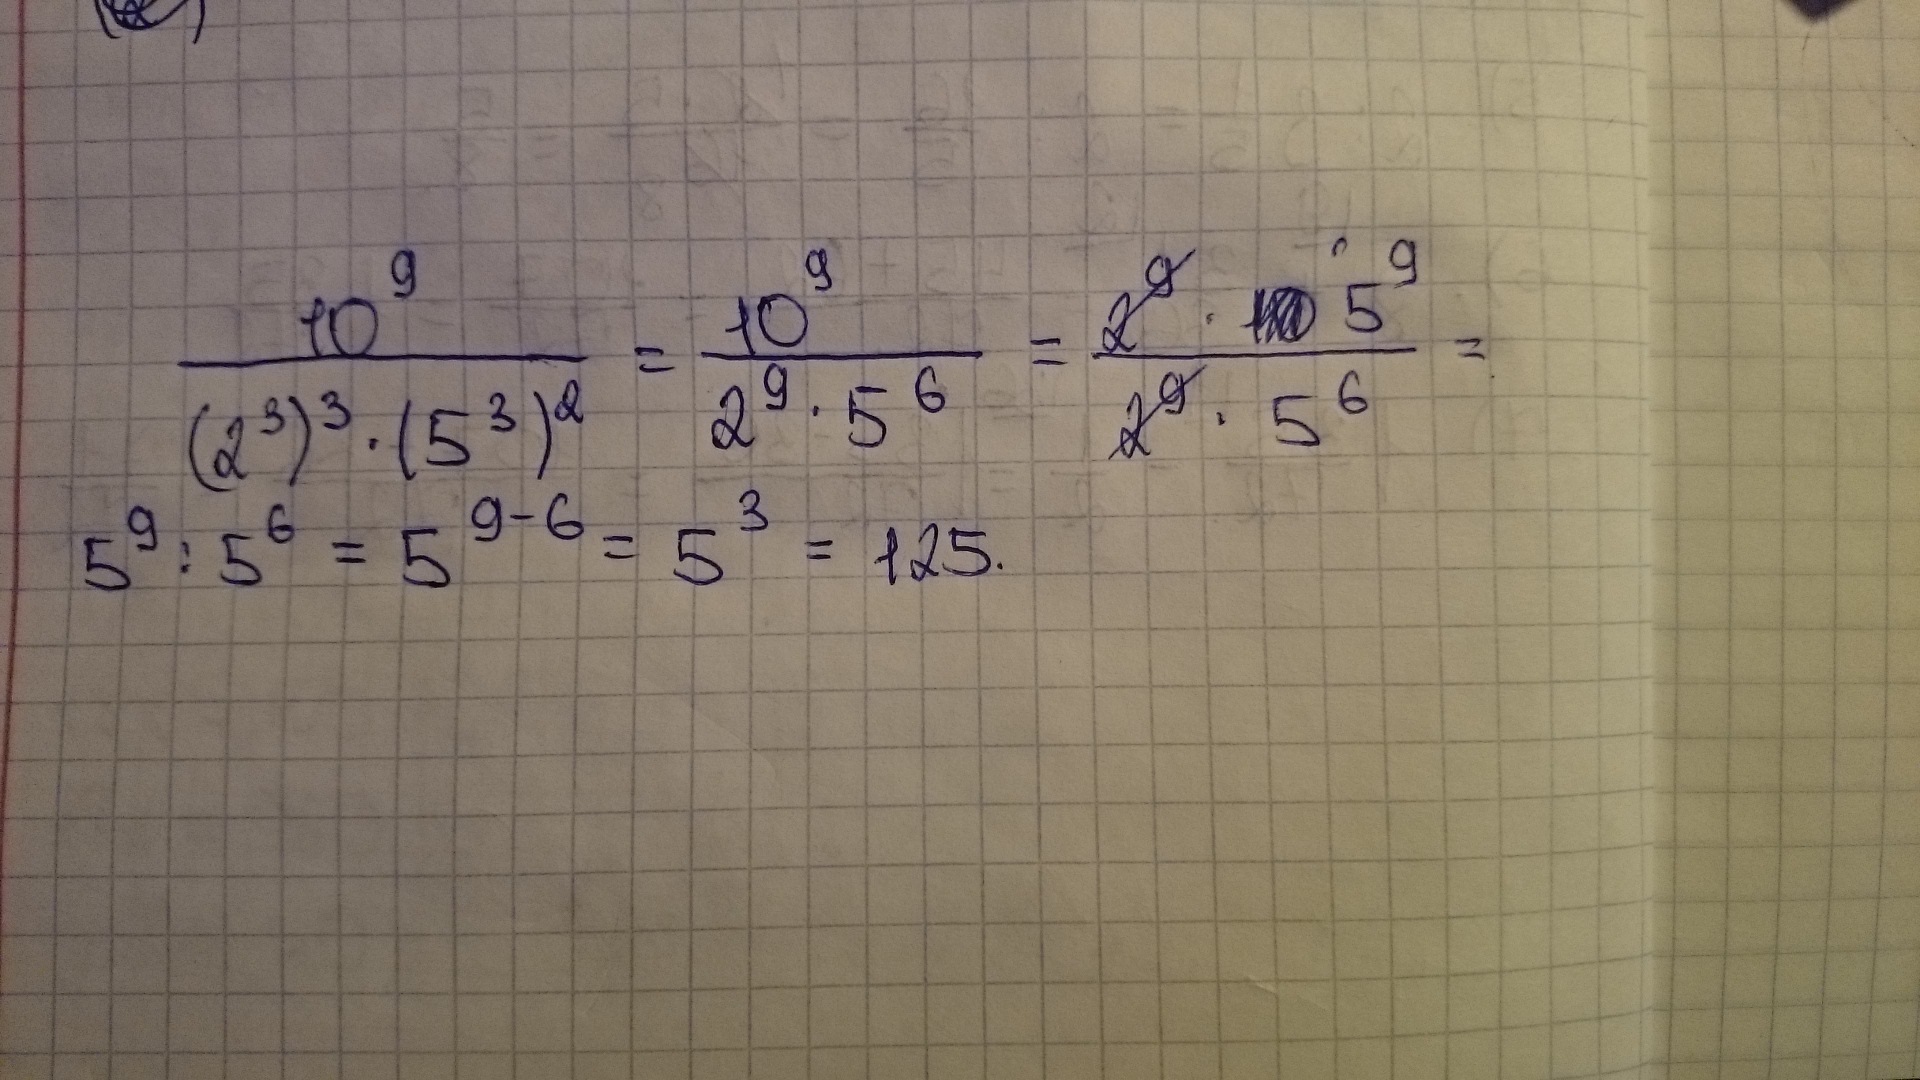 10⁹ / (2³)³ · (5³)² = 10⁹ / 2⁹ · 5⁶ = 2⁹ · 5⁹ / 2⁹ · 5⁶ =
5⁹ : 5⁶ = 5⁹⁻⁶ = 5³ = 125.